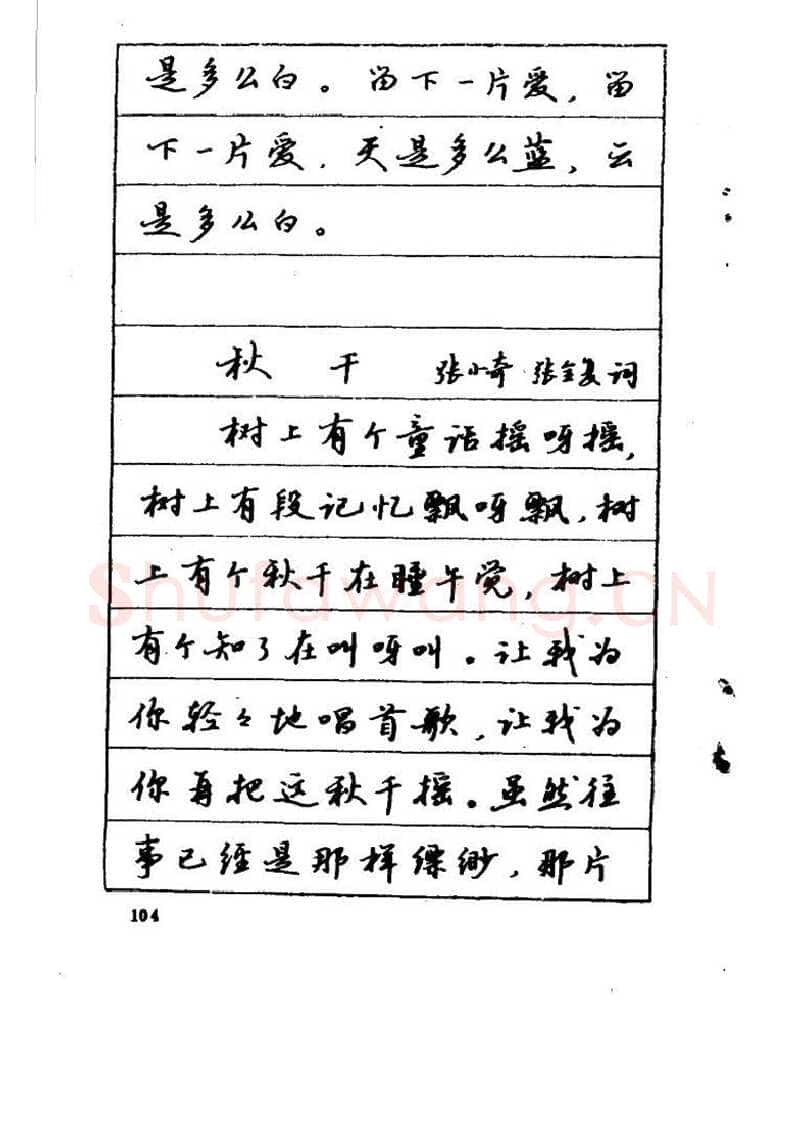 是多么白。留下一片爱，留
下一片爱，天是多么蓝，云
是多么白。
秋 千 张小奇 张全复词
树上有个童话摇呀摇，
树上有段记忆飘呀飘，树
上有个秋千在睡午觉，树上
有个知了在叫呀叫。让我为
你轻々地唱首歌，让我为
你再把这秋千摇。虽然往
事已经是那样缥缈，那片
104
Shufawang.CN